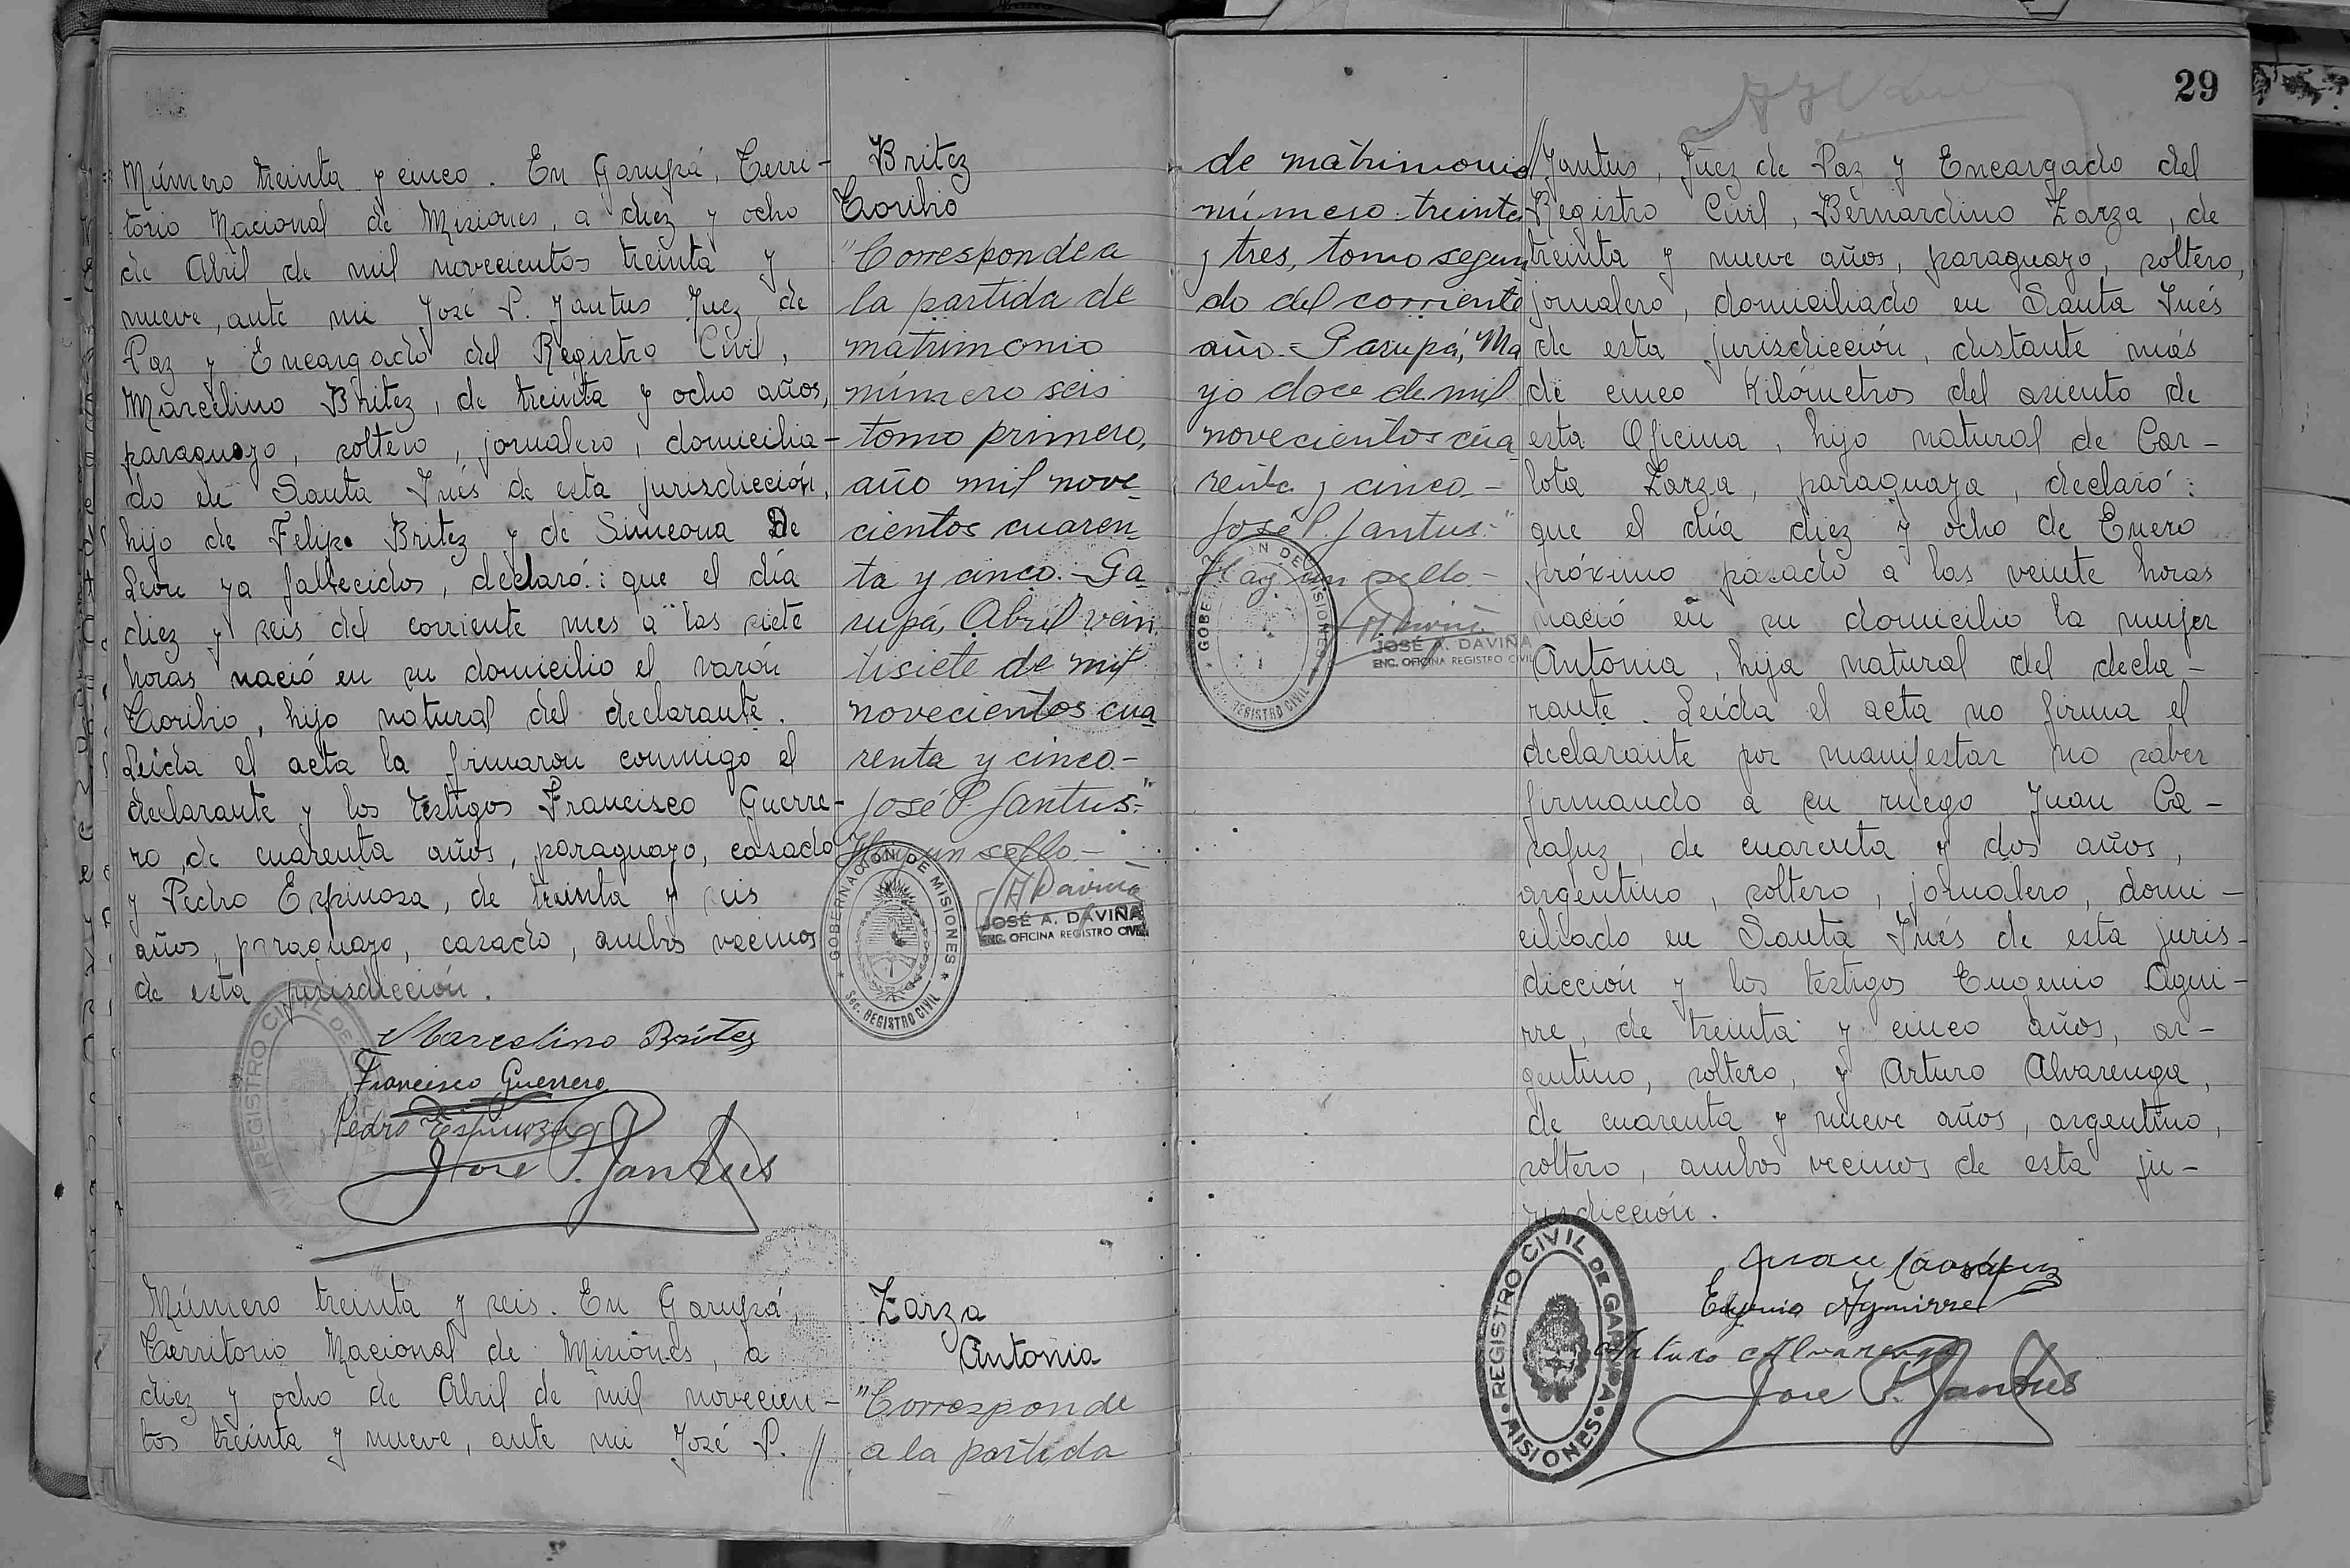 Número treinta y cinco. En Garupá, Terri-
torio Nacional de Misiones, a diez y ocho
de Abril de mil novecientos treinta y
nueve, ante mi José P. Jantus Juez de
Paz y Encargado del Registro Civil,
Marcelino Britez, de treinta y ocho años,
paraguayo, soltero, jornalero, domicilia-
do en Santa Inés de esta jurisdicción,
hijo de Felipe Britez y de Simeona De
Leon ya fallecidos, declaró: que el día
diez y seis del corriente mes a las siete
horas nació en su domicilio el varón
Toribio, hijo natural del declarante.
Leída el acta la firmaron conmigo el
declarante y los testigos Francisco Guerre-
ro, de cuarenta años, paraguayo, casado
y Pedro Espinosa, de treinta y seis
años, paraguayo, casado, ambos vecinos
de esta jurisdicción.
Marcelino Britez
Francisco Guerrero
Pedro Espinoza
José P. Jantus
REGISTRO CIVIL DE
Britez
Toribio
"Corresponde a
la partida de
matrimonio
número seis
tomo primero,
año mil nove-
cientos cuaren-
ta y cinco.- Ga-
rupá, Abril vein
tisiete de mil
novecientos cua
renta y cinco.-
José P. Jantus.-"
Hay un sello.-
GOBERNACIÓN DE MISIONES
Sec. REGISTRO CIVIL
JOSÉ A. DAVIÑA
ENC. OFICINA REGISTRO CIVIL
Número treinta y seis. En Garupá,
Territorio Nacional de Misiones, a
diez y ocho de Abril de mil novecien-
tos treinta y nueve, ante mi José P. //
Zarza
Antonia
"Corresponde
a la partida
de matrimonio
número treinta
y tres, tomo segun
do del corriente
año.= Garupá, Ma
yo doce de mil
novecientos cua
renta y cinco.-
José P. Jantus.-"
Hay un sello.-
GOBERNACIÓN DE MISIONES
Sec. REGISTRO CIVIL
JOSÉ A. DAVIÑA
ENC. OFICINA REGISTRO CIVIL
29
//Jantus, Juez de Paz y Encargado del
Registro Civil, Bernardino Zarza, de
treinta y nueve años, paraguayo, soltero,
jornalero, domiciliado en Santa Inés
de esta jurisdicción, distante más
de cinco Kilómetros del asiento de
esta Oficina, hijo natural de Car-
lota Zarza, paraguaya, declaró:
que el día diez y ocho de Enero
próximo pasado a las veinte horas
nació en su domicilio la mujer
Antonia, hija natural del decla-
rante. Leída el acta no firma el
declarante por manifestar no saber
firmando a su ruego Juan Ca-
rafuz, de cuarenta y dos años,
argentino, soltero, jornalero, domi-
ciliado en Santa Inés de esta juris-
dicción y los testigos Eugenio Agui-
rre, de treinta y cinco años, ar-
gentino, soltero, y Arturo Alvarenga,
de cuarenta y nueve años, argentino,
soltero, ambos vecinos de esta ju-
risdicción.
Juan
Eugenio Aguirre
Arturo Alvarenga
José P. Jantus
REGISTRO CIVIL DE GARUPA
MISIONES